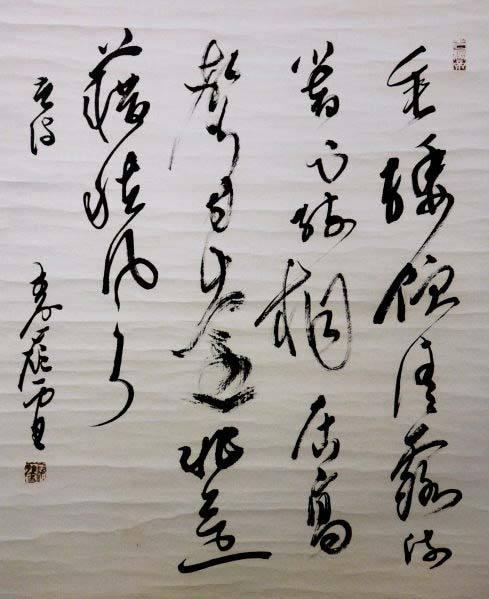 垂緌飲清露流
響出疏桐居高
聲自遠非是
藉秋風